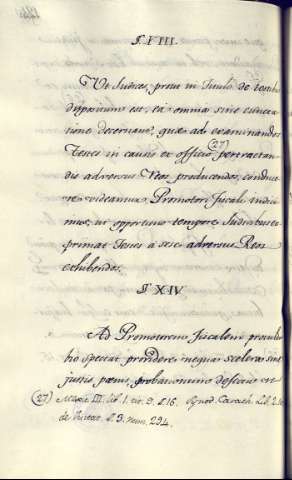 §. XIII.
Ut Judices, prout in Titulo de testibus
dispositum est, ea omnia sine cuncta
tione decernant, quæ ad examinandos
Testes in causis ex officio (27) pertractan
dis adversus Reos producendos, conduce
re videantur Promotori Fiscali indici
mus, ut opportuno tempore Judicibus ex
primat Testes à sese adversus Reos
exhibendos.
§. XIV.
Ad Promotorem Fiscalem procul du
bio spectat providere, nequa scelera sine
justis poenis, probationum defectu re
(27) Mexic. III. lib. 1. tit. 9. §. 16. Synod. Carach. Lib. 2.
de Fiscal. §. 3. num. 294.